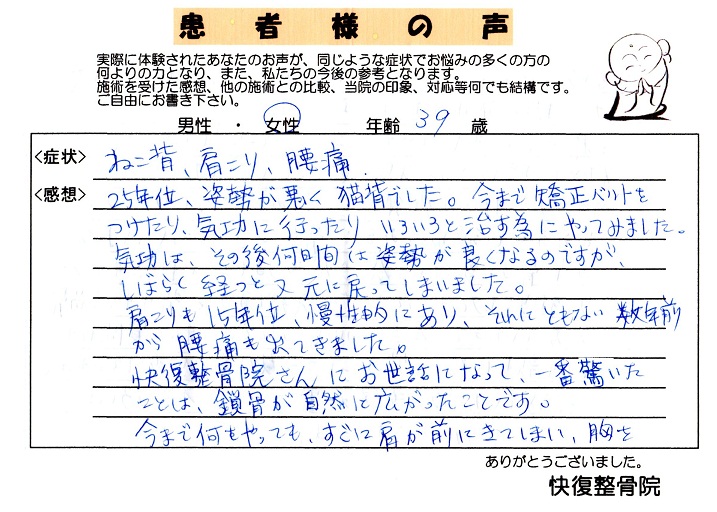 患者様の声
実際に体験されたあなたのお声が、同じような症状でお悩みの多くの方の
何よりの力となり、また、私たちの今後の参考となります。
施術を受けた感想、他の施術との比較、当院の印象、対応等何でも結構です。
ご自由にお書き下さい。
男性 ・ 女性 年齢 39 歳
<症状> ねこ背、肩こり、腰痛
<感想> 25年位、姿勢が悪く猫背でした。今まで矯正ベルトを
つけたり、気功に行ったりいろいろと治す為にやってみました。
気功は、その後何日間は姿勢が良くなるのですが、
しばらく経つと又元に戻ってしまいました。
肩こりも15年位、慢性的にあり、それにともない数年前
から腰痛も出てきました。
快復整骨院さんにお世話になって、一番驚いた
ことは、鎖骨が自然に広がったことです。
今まで何をやっても、すぐに肩が前にきてしまい、胸を
ありがとうございました。
快復整骨院